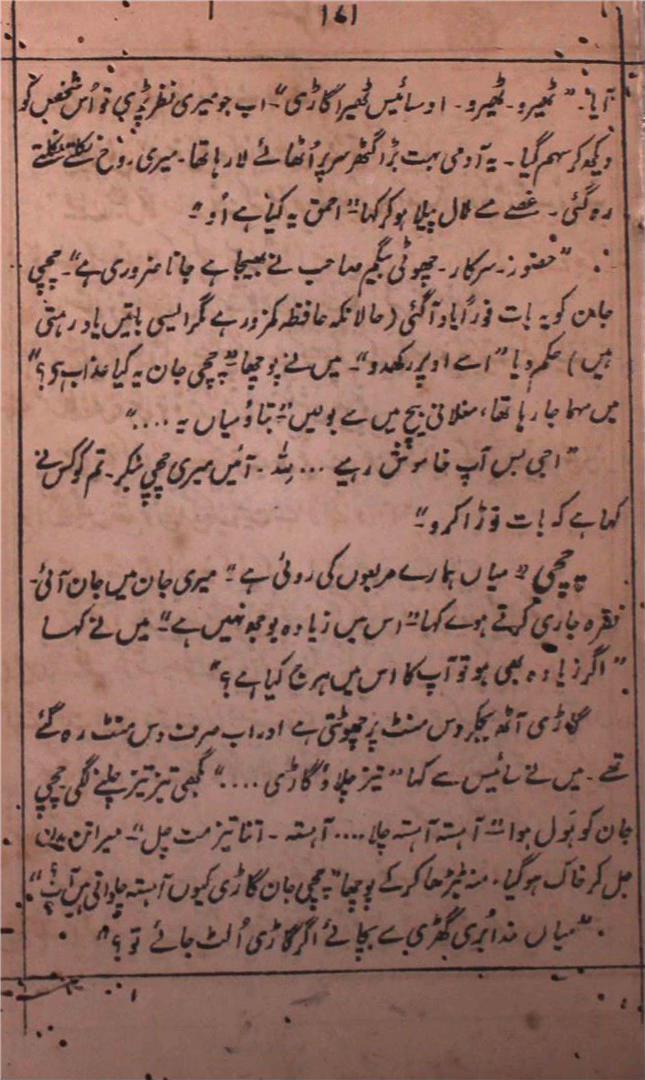 ۱۶۱
آیا۔ "ٹھیرو۔ ٹھیرو۔ او سائیس ٹھیرا گاڑی"۔ اب جو میری نظر پڑی تو اُس شخص کو
دیکھ کر سہم گیا۔ یہ آدمی بہت بڑا گٹھر سر پر اُٹھائے لا رہا تھا۔ میری روح نکلتے نکلتے
رہ گئی۔ غصے سے لال پیلا ہوکر کہا "احمق یہ کیا ہے اُو"
"حضور۔ سرکار۔ چھوٹی بیگم صاحب نے بھیجا ہے جانا ضروری ہے"۔ چچی
جان کو یہ بات فوراً یاد آگئی (حالانکہ حافظہ کمزور ہے مگر ایسی باتیں یاد رہتی
ہیں) حکم دیا "اسے اوپر رکھدو"۔ میں نے پوچھا "چچی جان یہ کیا عذاب ہی؟"
میں سہما جا رہا تھا، مغلانی بیچ میں سے بولیں "بتاؤ میاں یہ ...."
"اجی بس آپ خاموش رہیے ... ہٹ۔ آئیں میری چچی بنکر۔ تم کو کس نے
کہا ہے کہ بات توڑا کرو"
چچی "میاں ہمارے مربعوں کی روئی ہے" میری جان میں جان آئی۔
فقرہ جاری کرتے ہوے کہا "اس میں زیادہ بوجھ نہیں ہے" میں نے کہا
"اگر زیادہ بھی ہو تو آپ کا اس میں ہرج کیا ہے؟"
گاڑی آٹھ بجکر دس منٹ پر چھوٹتی ہے اور اب صرف دس منٹ رہ گئے
تھے۔ میں نے سائیس سے کہا "تیز چلاؤ گاڑی ...." بگھی تیز تیز چلنے لگی چچی
جان کو ہَول ہوا "آہستہ آہستہ چلا .... آہستہ۔ اتنا تیز مت چل"۔ میرا تن بدن
جل کر خاک ہوگیا۔ منہ ٹیڑھا کرکے پوچھا "چچی جان گاڑی کیوں آہستہ چلواتی ہیں آپ؟"
"میاں خدا بُری گھڑی سے بچائے اگر گاڑی اُلٹ جائے تو؟"